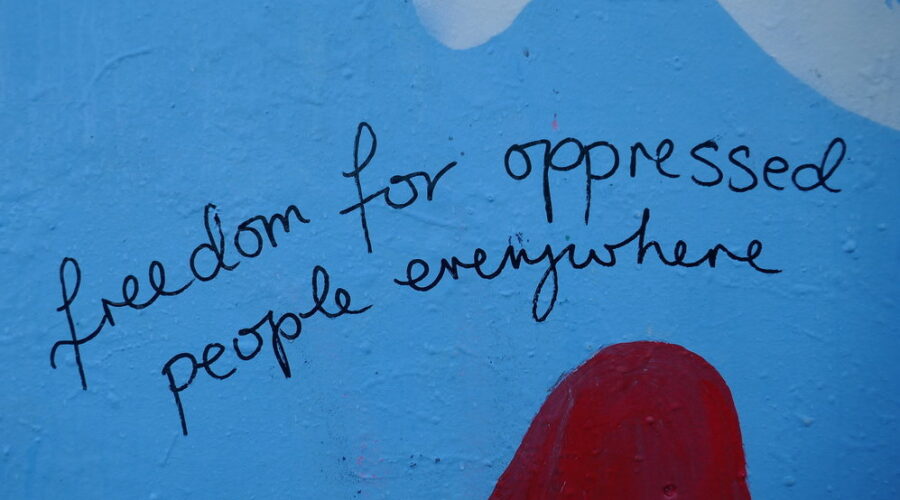 freedom for oppressed
people everywhere